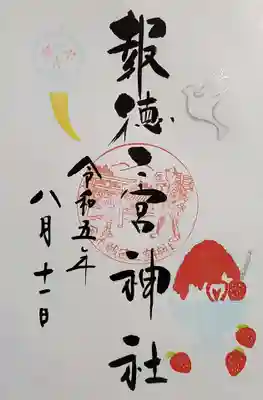 報徳二宮神社
令和五年
八月十一日